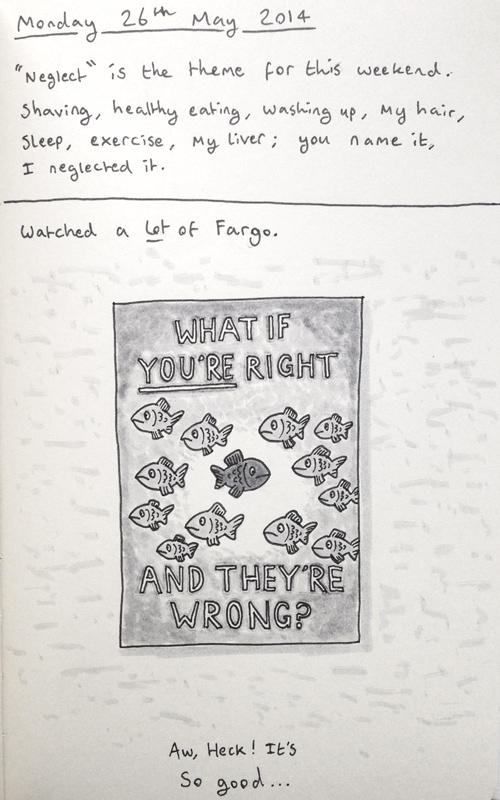 Monday 26th May 2014
"Neglect" is the theme for this weekend.
Shaving, healthy eating, washing up, my hair,
sleep, exercise, my liver; you name it,
I neglected it.
Watched a lot of Fargo.
WHAT IF
YOU'RE RIGHT
AND THEY'RE
WRONG?
Aw, Heck! It's
So good...